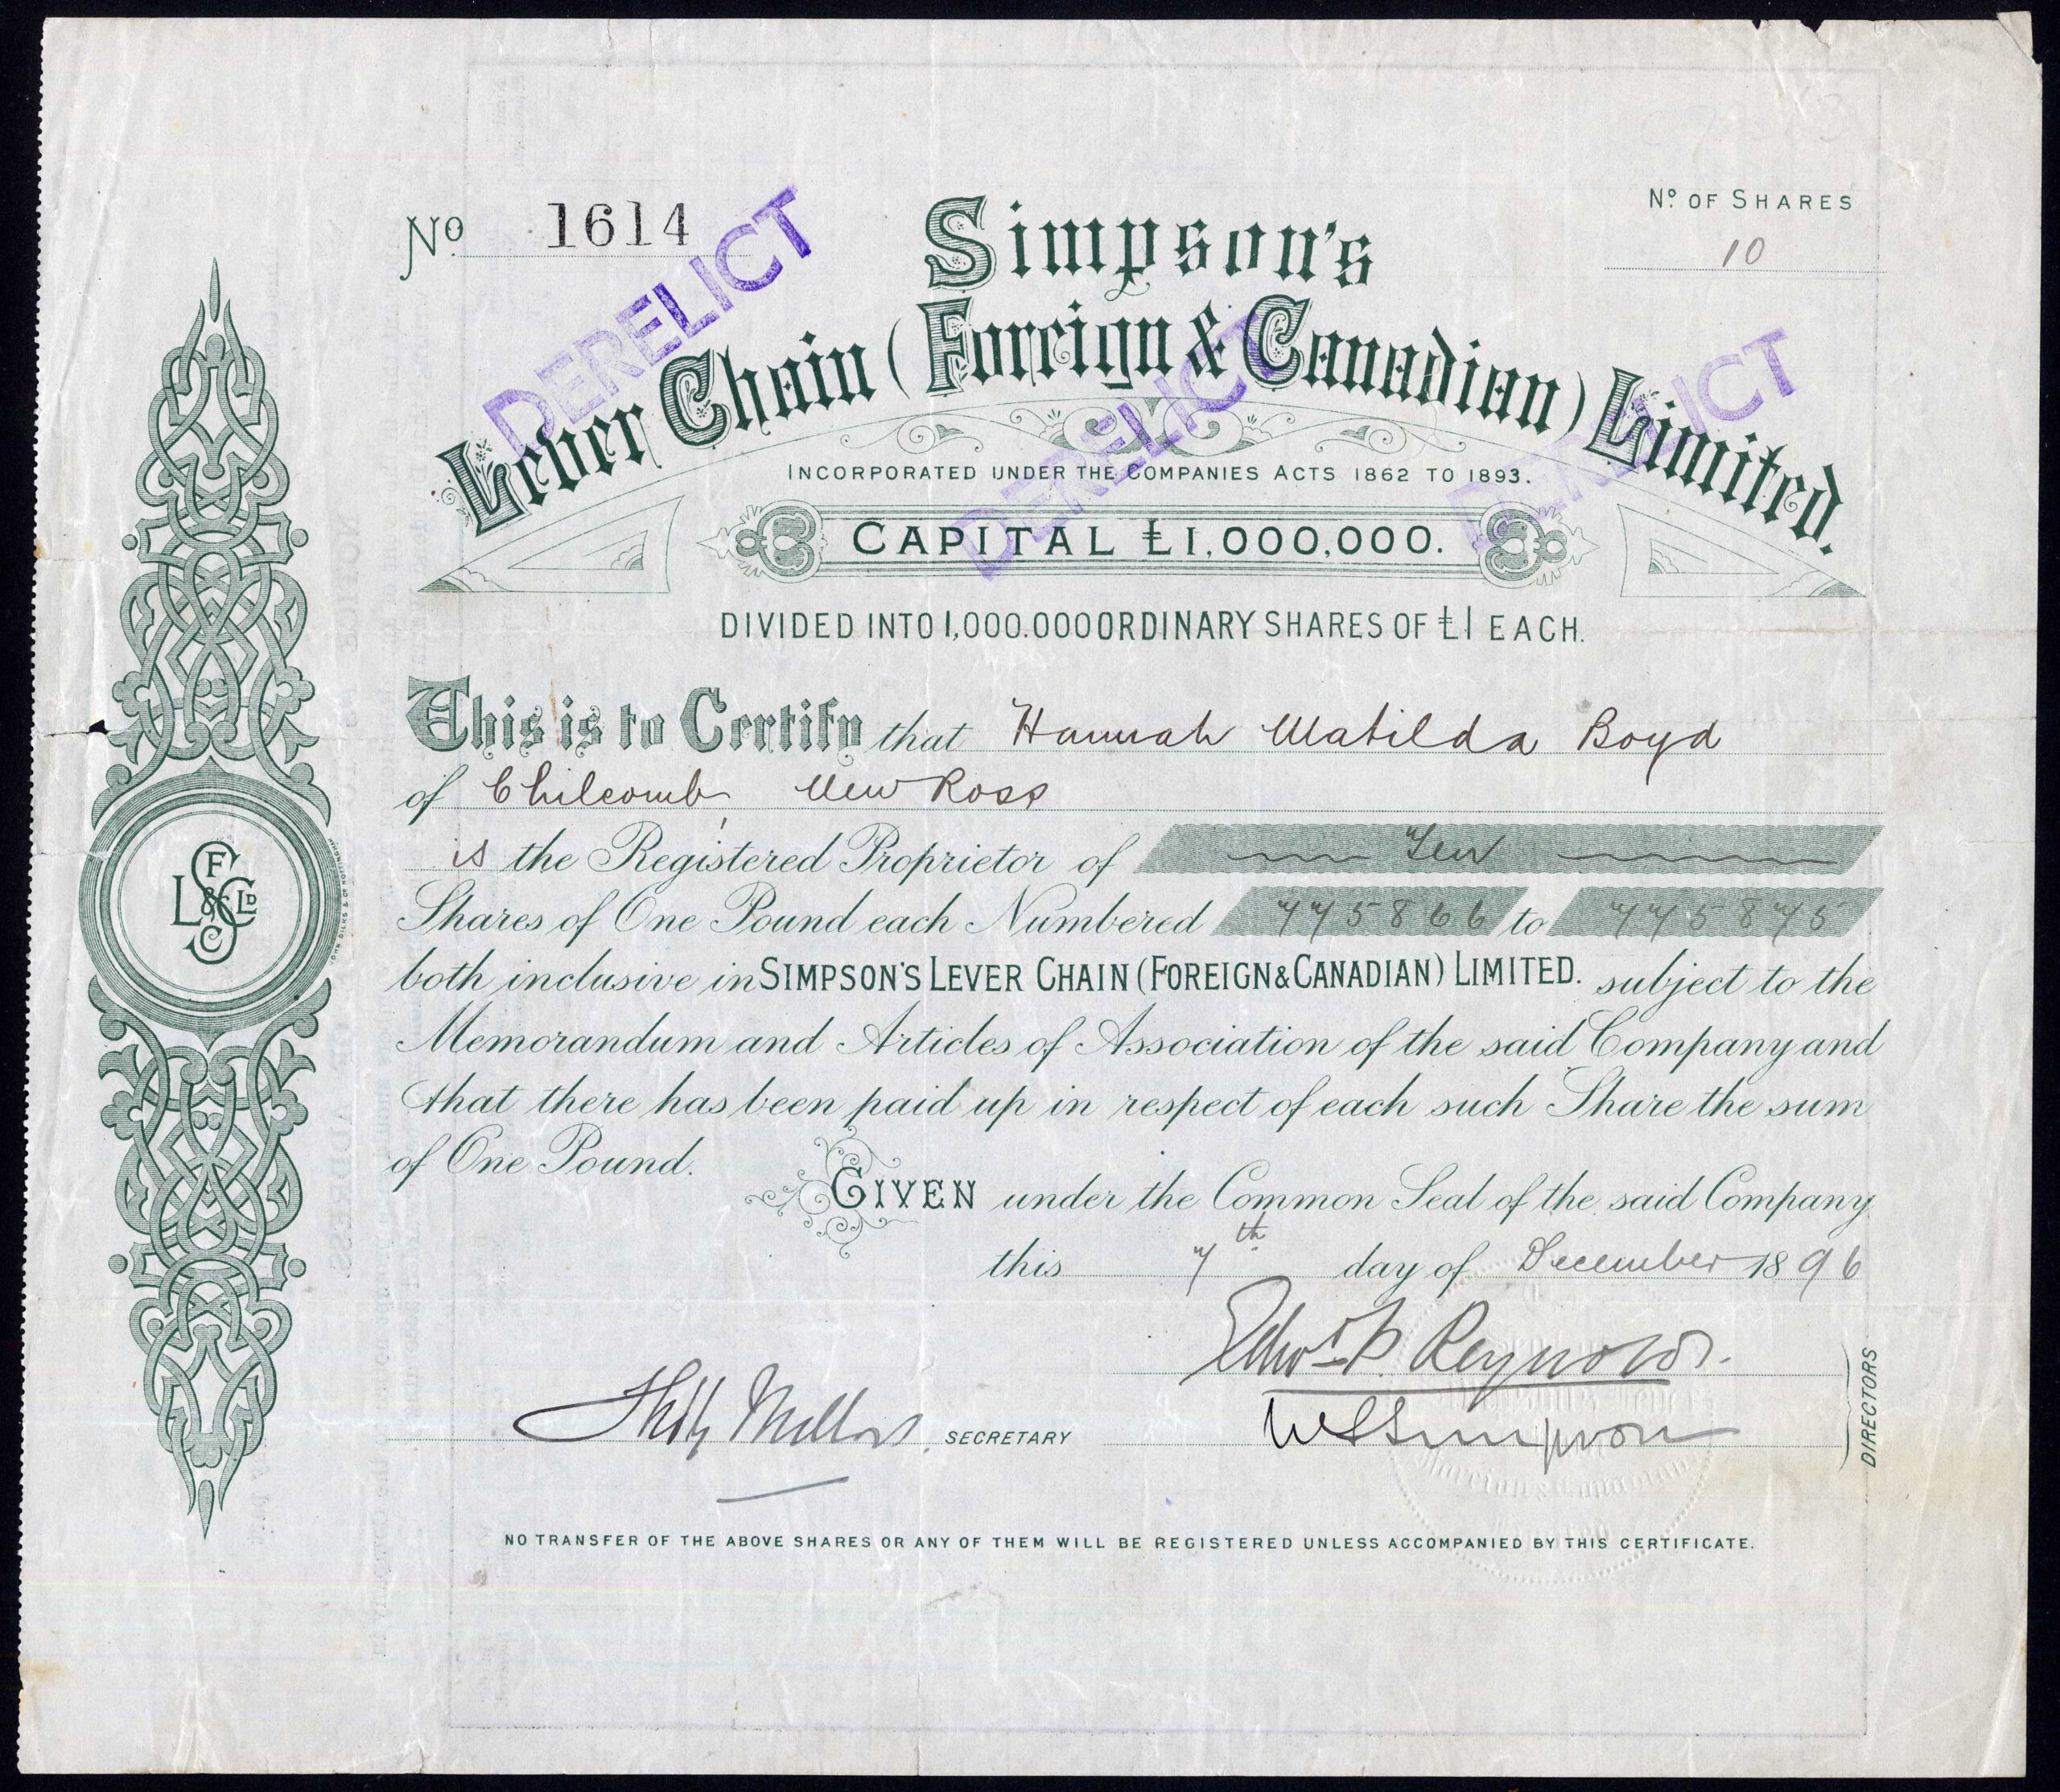 No. 1614
No. OF SHARES
10
DERELICT
DERELICT
DERELICT
Simpson's
Lever Chain (Foreign & Canadian) Limited.
INCORPORATED UNDER THE COMPANIES ACTS 1862 TO 1893.
CAPITAL £1,000,000.
DIVIDED INTO 1,000.000 ORDINARY SHARES OF £1 EACH.
This is to Certify that Hannah Matilda Boyd
of Chilcomb, New Ross
is the Registered Proprietor of Ten
Shares of One Pound each Numbered 775866 to 775875
both inclusive in SIMPSON'S LEVER CHAIN (FOREIGN & CANADIAN) LIMITED. subject to the
Memorandum and Articles of Association of the said Company and
that there has been paid up in respect of each such Share the sum
of One Pound.
GIVEN under the Common Seal of the said Company
this 7th day of December 1896
Edwd. P. Reynolds.
Mellors. SECRETARY
W S Simpson
DIRECTORS
NO TRANSFER OF THE ABOVE SHARES OR ANY OF THEM WILL BE REGISTERED UNLESS ACCOMPANIED BY THIS CERTIFICATE.
S L F & C Co LD